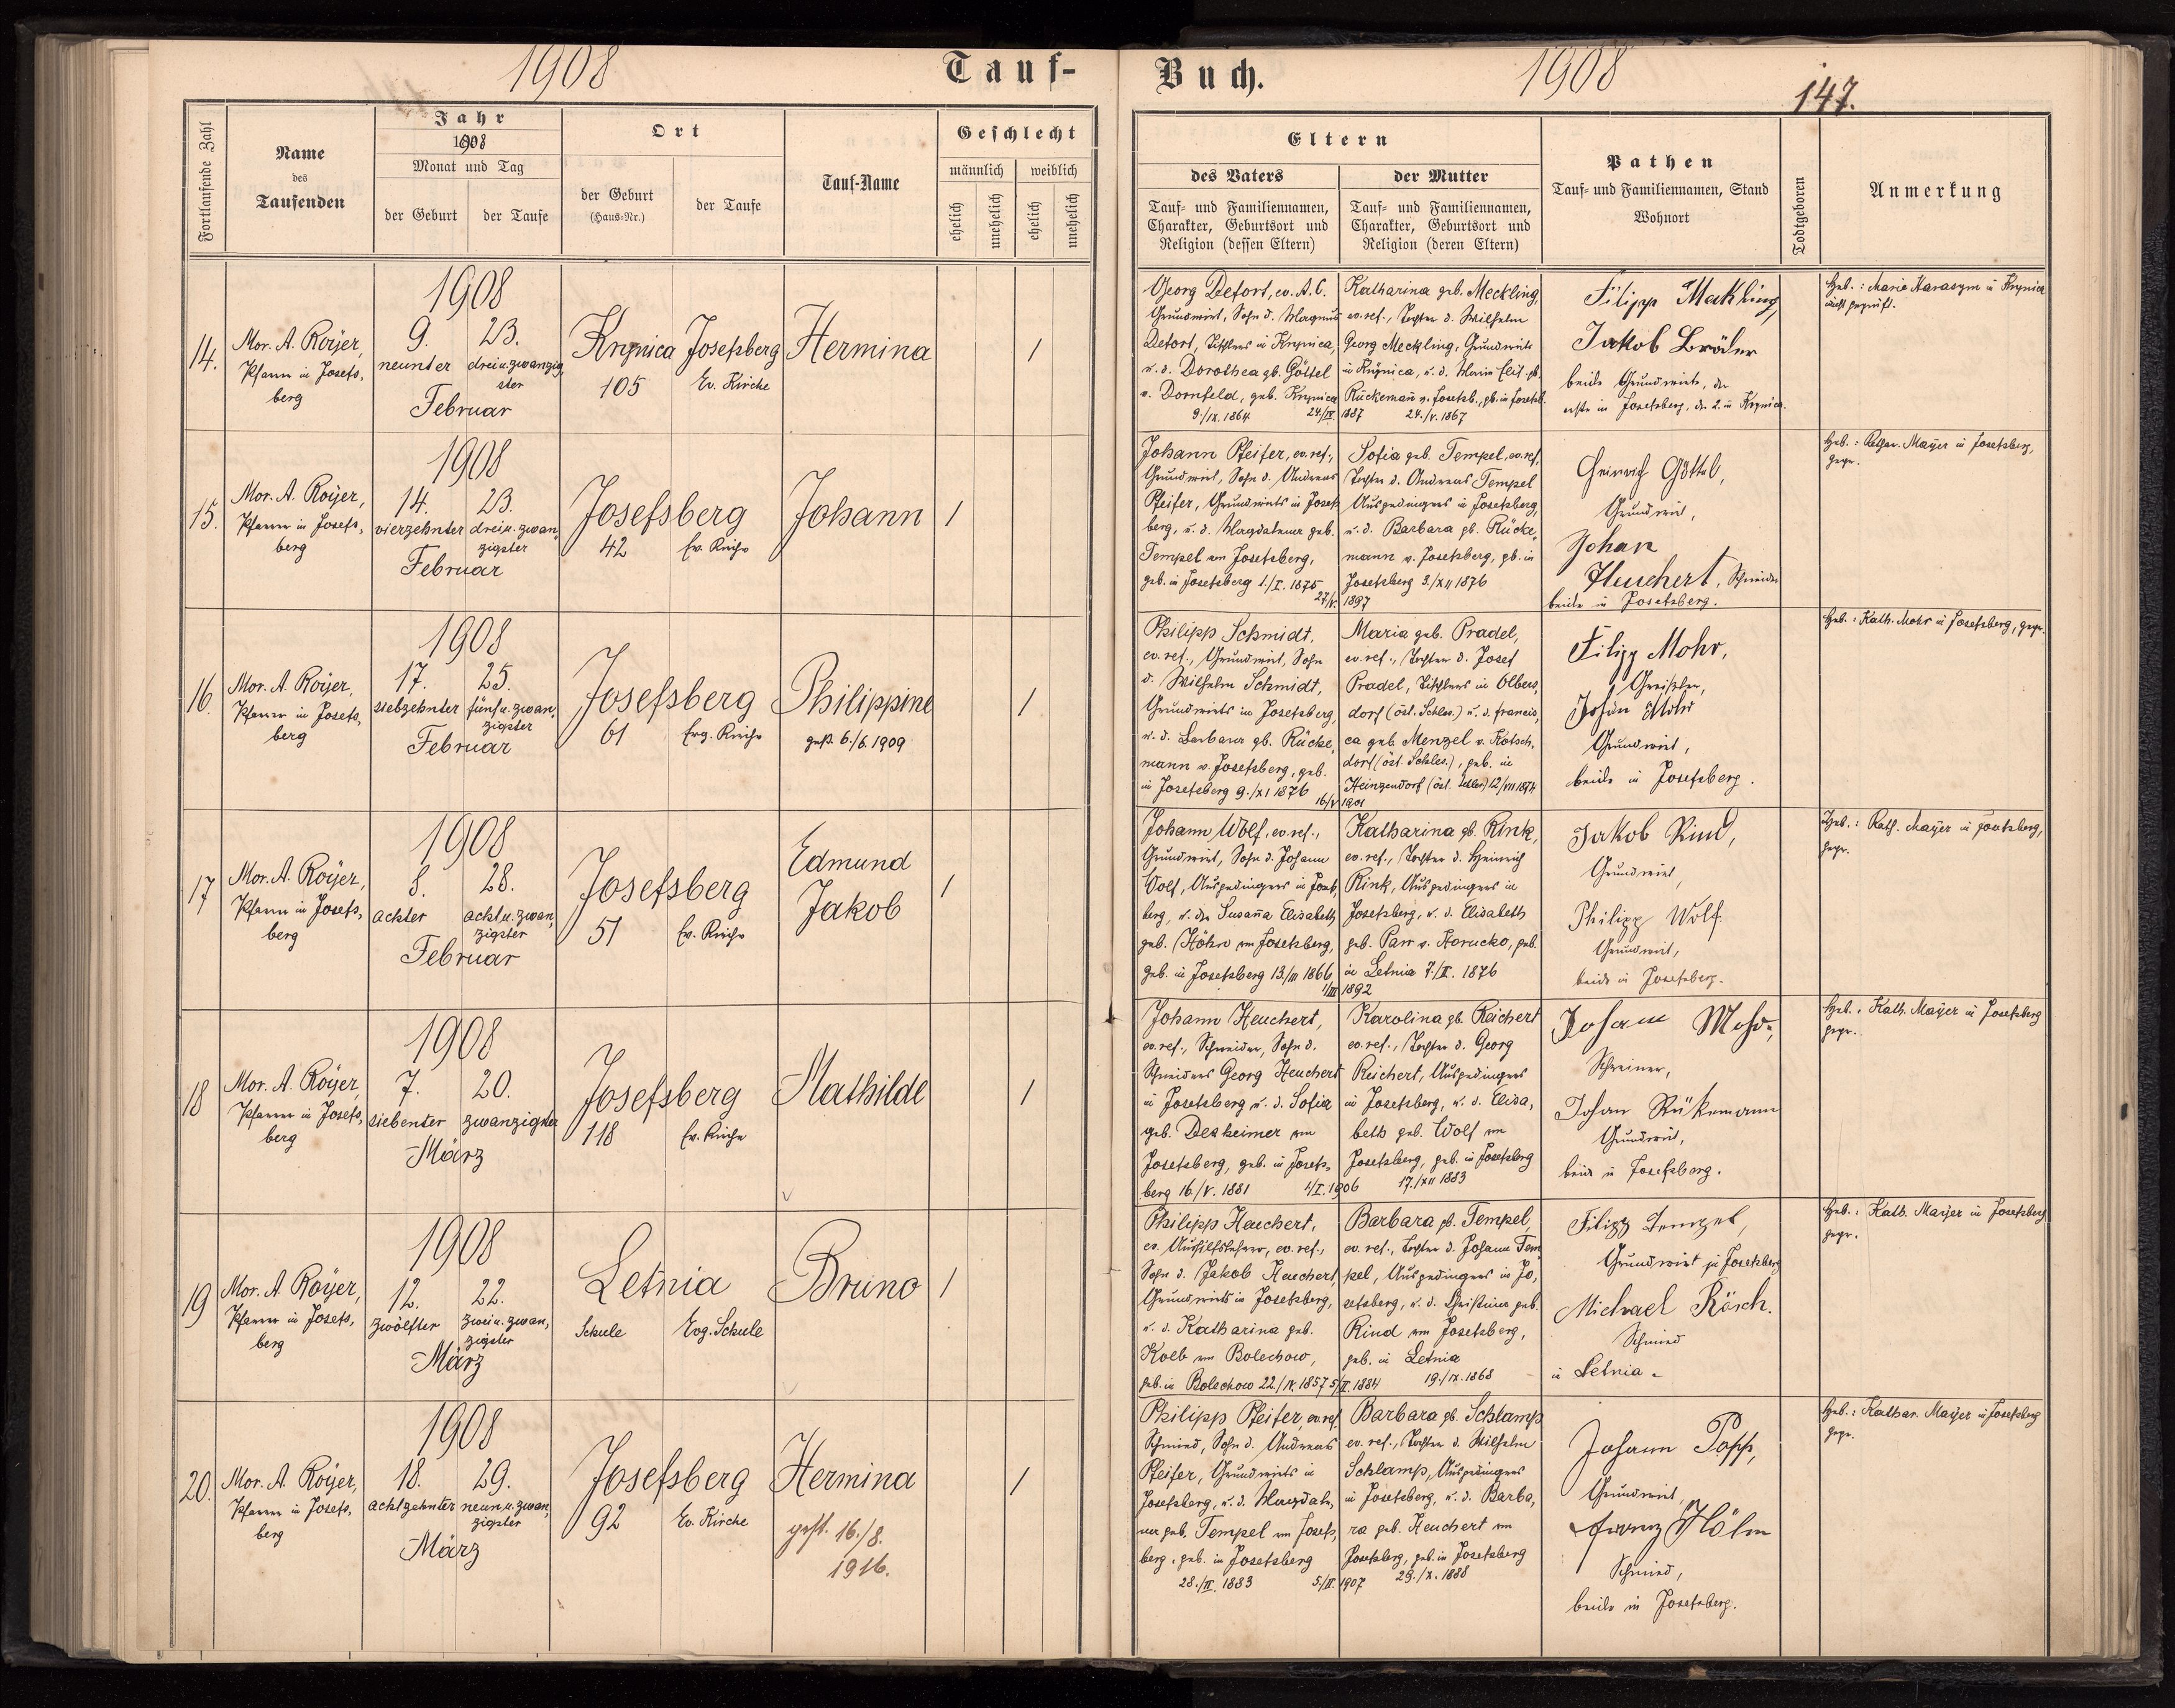 1908
Tauf-
Buch.
1908
147.
Fortlaufende Zahl
Name
des
Taufenden
Jahr
1908
Monat und Tag
der Geburt
der Taufe
Ort
der Geburt
(Haus-Nr.)
der Taufe
Tauf-Name
Geschlecht
männlich
weiblich
ehelich
unehelich
ehelich
unehelich
Eltern
des Vaters
Tauf- und Familiennamen,
Charakter, Geburtsort und
Religion (dessen Eltern)
der Mutter
Tauf- und Familiennamen,
Charakter, Geburtsort und
Religion (deren Eltern)
Pathen
Tauf- und Familiennamen, Stand
Wohnort
Todtgeboren
Anmerkung
14.
Mor. A. Royer,
Pfarrer in Josefs,
berg
1908
9. 23.
neunter drei u. zwanzig,
ster
Februar
Krynica Josefsberg
105 Ev. Kirche
Hermina
1
Georg Defort, ev. A. C.
Grundwirt, Sohn d. Magnus
Defort, Tischlers in Krynica,
u. d. Dorothea gb. Göttel
v. Dornfeld, geb. Krynica
9./IX. 1864 24/IV.
Katharina geb. Meckling,
ev. ref., Tochter d. Wilhelm
Georg Meckling, Grundwirts
in Krynica, u. d. Maria Elis. gb.
Rückemann v. Josefsb., gb. in Josefsb.
1887 24./V. 1867
Filipp Makling,
Jakob Bräder
beide Grundwirte, der
erste in Josefsberg, der 2. in Krynica.
Heb.: Marie Harasym in Krynica
nicht geprüft.
15.
Mor. A. Royer,
Pfarrer in Josefs,
berg
1908
14. 23.
vierzehnter drei u. zwan,
zigster
Februar
Josefsberg
42 Ev. Kirche
Johann
1
Johann Pfeifer, ev. ref.,
Grundwirt, Sohn d. Andreas
Pfeifer, Grundwirts in Josefs
berg, u. d. Magdalena geb.
Tempel von Josefsberg,
geb. in Josefsberg 1./I. 1875
27/V.
Sofia geb. Tempel, ev. ref.,
Tochter d. Andreas Tempel
Ausgedingers in Josefsberg,
u. d. Barbara gb. Rücke,
mann v. Josefsberg, gb. in
Josefsberg 3./XII 1876
1897
Heinrich Göttel,
Grundwirt,
Johan
Heuchert, Schneider
beide in Josefsberg.
Heb.: Kathar. Mayer in Josefsberg,
gepr.
16.
Mor. A. Royer,
Pfarrer in Josefs,
berg
1908
17. 25.
siebzehnter fünf u. zwan,
zigster
Februar
Josefsberg
61 Evg. Kirche
Philippine
gest. 6./6. 1909
1
Philipp Schmidt,
ev. ref., Grundwirt, Sohn
d. Wilhelm Schmidt,
Grundwirts in Josefsberg,
u. d. Barbara gb. Rücke,
mann v. Josefsberg, geb.
in Josefsberg 9./XI 1876
16/V
Maria geb. Pradel,
ev. ref., Tochter d. Josef
Pradel, Tischlers in Olbers,
dorf (öst. Schles.) u. d. Francis,
ca geb. Menzel v. Rötsch,
dorf (öst. Schles.), geb. in
Heinzendorf (öst. Schles) 12/VII 1874
1901
Filipp Mohr,
Greißler,
Johan Mohr
Grundwirt,
beide in Josefsberg.
Heb.: Kath. Mohr in Josefsberg, gepr.
17
Mor. A. Royer,
Pfarrer in Josefs,
berg
1908
8. 28.
achter acht u. zwan,
zigster
Februar
Josefsberg
51 Ev. Kirche
Edmund
Jakob
1
Johann Wolf, ev. ref.,
Grundwirt, Sohn d. Johann
Wolf, Ausgedingers in Josefs,
berg, u. der Susanna Elisabeth
geb. Höhn von Josefsberg,
geb. in Josefsberg 13./III 1866
1/III
Katharina gb. Rink,
ev. ref., Tochter d. Heinrich
Rink, Ausgedingers in
Josefsberg, u. d. Elisabeth
geb. Parr v. Horucko, geb.
in Letnia 7./II. 1876
1892
Jakob Rind,
Grundwirt,
Philipp Wolf.
Grundwirt,
beide in Josefsberg.
Heb.: Kath. Mayer in Josefsberg,
gepr.
18
Mor. A. Royer,
Pfarrer in Josefs,
berg
1908
7. 20.
siebenter zwanzigster
März
Josefsberg
118 Ev. Kirche
Mathilde
1
Johann Heuchert,
ev. ref., Schneider, Sohn d.
Schneiders Georg Heuchert
in Josefsberg u. d. Sofia
geb. Desheimer von
Josefsberg, geb. in Josefs,
berg 16/V. 1881 4/I.
Karolina gb. Reichert
ev. ref., Tochter d. Georg
Reichert, Ausgedingers
in Josefsberg, u. d. Elisa,
beth geb. Wolf von
Josefsberg, geb. in Josefsberg
1906 17./XII 1883
Johann Mohr,
Schreiner,
Johan Rükemann
Grundwirt,
beide in Josefsberg.
Heb.: Kath. Mayer in Josefsberg
gepr.
19
Mor. A. Royer,
Pfarrer in Josefs,
berg
1908
12. 22.
zwölfter zwei u. zwan,
zigster
März
Letnia
Schule Evg. Schule
Bruno
1
Philipp Heuchert,
ev. Aushilfslehrer, ev. ref.,
Sohn d. Jakob Heuchert,
Grundwirts in Josefsberg,
u. d. Katharina geb.
Kolb von Bolechow,
geb. in Bolechow 22./IX. 1857 5/
Barbara gb. Tempel,
ev. ref., Tochter d. Johann Tem
pel, Ausgedingers in Jo,
sefsberg, u. d. Christina geb.
Rind von Josefsberg,
geb. in Letnia
II. 1884 19./IX. 1868
Filipp Tempel,
Grundwirt in Josefsberg
Michael Rösch.
Schmied
in Letnia.
Heb.: Kath. Mayer in Josefsberg
gepr.
20.
Mor. A. Royer,
Pfarrer in Josefs,
berg
1908
18. 29.
achtzehnter neun u. zwan,
zigster
März
Josefsberg
92 Ev. Kirche
Hermina
gest. 16./8.
1916.
1
Philipp Pfeifer ev. ref.
Schmied, Sohn d. Andreas
Pfeifer, Grundwirts in
Josefsberg, u. d. Magdale,
na geb. Tempel von Josefs,
berg, geb. in Josefsberg
28./II. 1883 5./II.
Barbara gb. Schlamp
ev. ref., Tochter d. Wilhelm
Schlamp, Ausgedingers
in Josefsberg, u. d. Barba,
ra geb. Heuchert von
Josefsberg, geb. in Josefsberg
1907 29./X. 1888
Johann Popp,
Grundwirt,
Franz Höhn
Schmied,
beide in Josefsberg.
Heb.: Kathar. Mayer in Josefsberg
gepr.